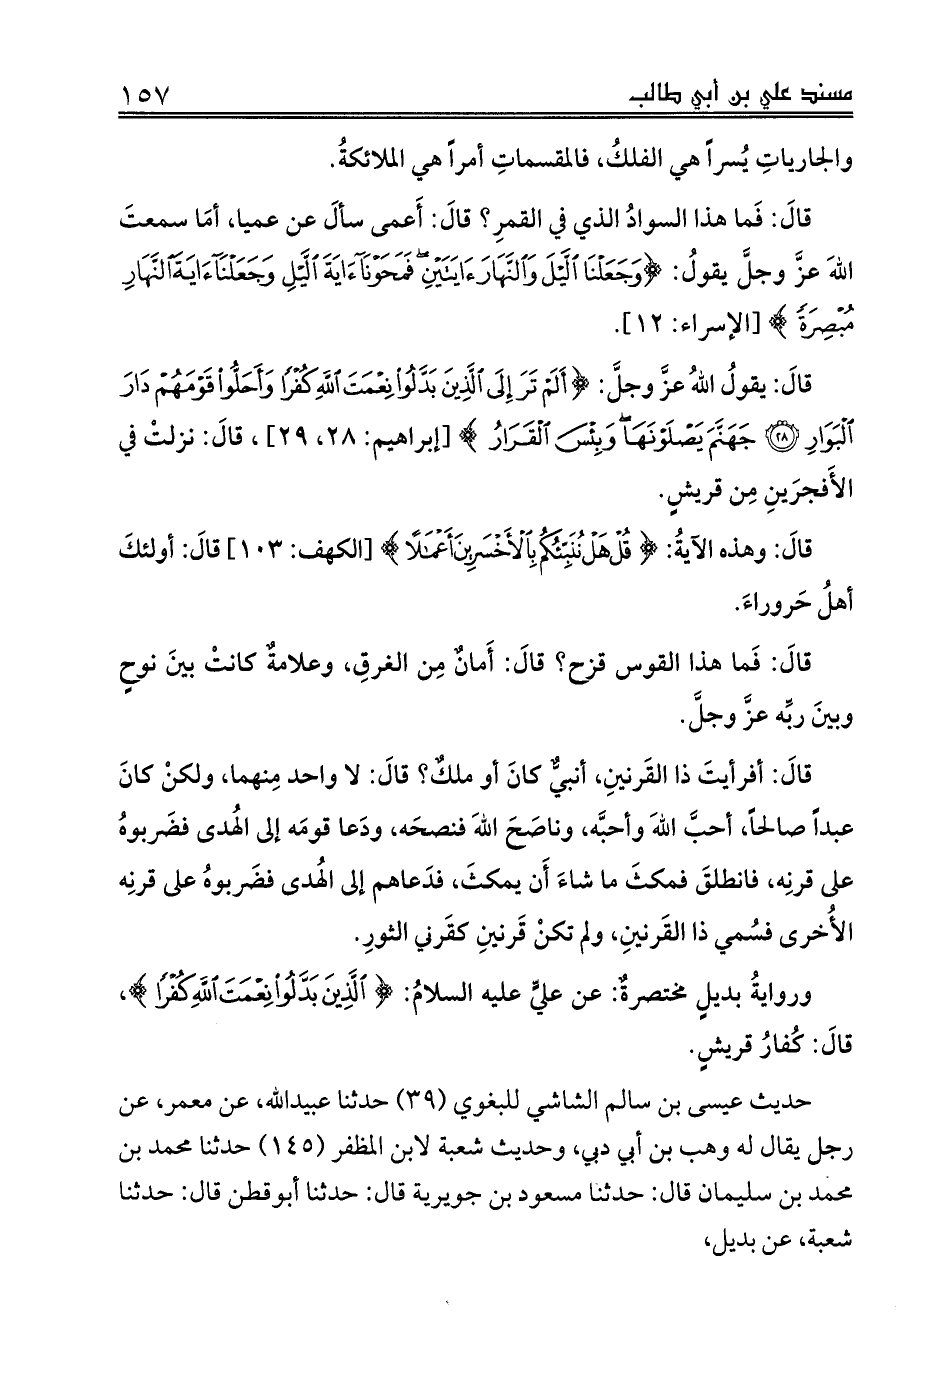 مسند علي بن أبي طالب ١٥٧
والجارياتِ يُسراً هي الفلكُ، فالمقسماتِ أمراً هي الملائكةُ.
قالَ: فَما هذا السوادُ الذي في القمرِ؟ قالَ: أَعمى سألَ عن عميا، أمَا سمعتَ
اللهَ عزَّ وجلَّ يقولُ: ﴿وَجَعَلْنَا ٱلَّيْلَ وَٱلنَّهَارَ ءَايَتَيْنِ ۖ فَمَحَوْنَآ ءَايَةَ ٱلَّيْلِ وَجَعَلْنَآ ءَايَةَ ٱلنَّهَارِ
مُبْصِرَةً ﴾ [الإسراء: ١٢].
قالَ: يقولُ اللهُ عزَّ وجلَّ: ﴿ أَلَمْ تَرَ إِلَى ٱلَّذِينَ بَدَّلُوا۟ نِعْمَتَ ٱللَّهِ كُفْرًا وَأَحَلُّوا۟ قَوْمَهُمْ دَارَ
ٱلْبَوَارِ ﴿٢٨﴾ جَهَنَّمَ يَصْلَوْنَهَا ۖ وَبِئْسَ ٱلْقَرَارُ ﴾ [إبراهيم: ٢٨، ٢٩]، قالَ: نزلتْ في
الأَفجرَينِ مِن قريشٍ.
قالَ: وهذه الآيةُ: ﴿ قُلْ هَلْ نُنَبِّئُكُم بِٱلْأَخْسَرِينَ أَعْمَٰلًا ﴾ [الكهف: ١٠٣] قالَ: أولئكَ
أهلُ حَروراءَ.
قالَ: فَما هذا القوس قزح؟ قالَ: أَمانٌ مِن الغرقِ، وعلامةٌ كانتْ بينَ نوحٍ
وبينَ ربِّه عزَّ وجلَّ.
قالَ: أفرأيتَ ذا القَرنينِ، أنبيٌّ كانَ أو ملكٌ؟ قالَ: لا واحد مِنهما، ولكنْ كانَ
عبداً صالحاً، أحبَّ اللهَ وأحبَّه، وناصَحَ اللهَ فنصحَه، ودَعا قومَه إلى الهُدى فضَربوهُ
على قرنِه، فانطلقَ فمكثَ ما شاءَ أَن يمكثَ، فدَعاهم إلى الهُدى فضَربوهُ على قرنِه
الأُخرى فسُمي ذا القَرنينِ، ولم تكنْ قَرنينِ كقَرني الثورِ.
وروايةُ بديلٍ مختصرةٌ: عن عليٍّ عليه السلامُ: ﴿ ٱلَّذِينَ بَدَّلُوا۟ نِعْمَتَ ٱللَّهِ كُفْرًا ﴾،
قالَ: كُفارُ قريشٍ.
حديث عيسى بن سالم الشاشي للبغوي (٣٩) حدثنا عبيدالله، عن معمر، عن
رجل يقال له وهب بن أبي دبي، وحديث شعبة لابن المظفر (١٤٥) حدثنا محمد بن
محمد بن سليمان قال: حدثنا مسعود بن جويرية قال: حدثنا أبوقطن قال: حدثنا
شعبة، عن بديل،